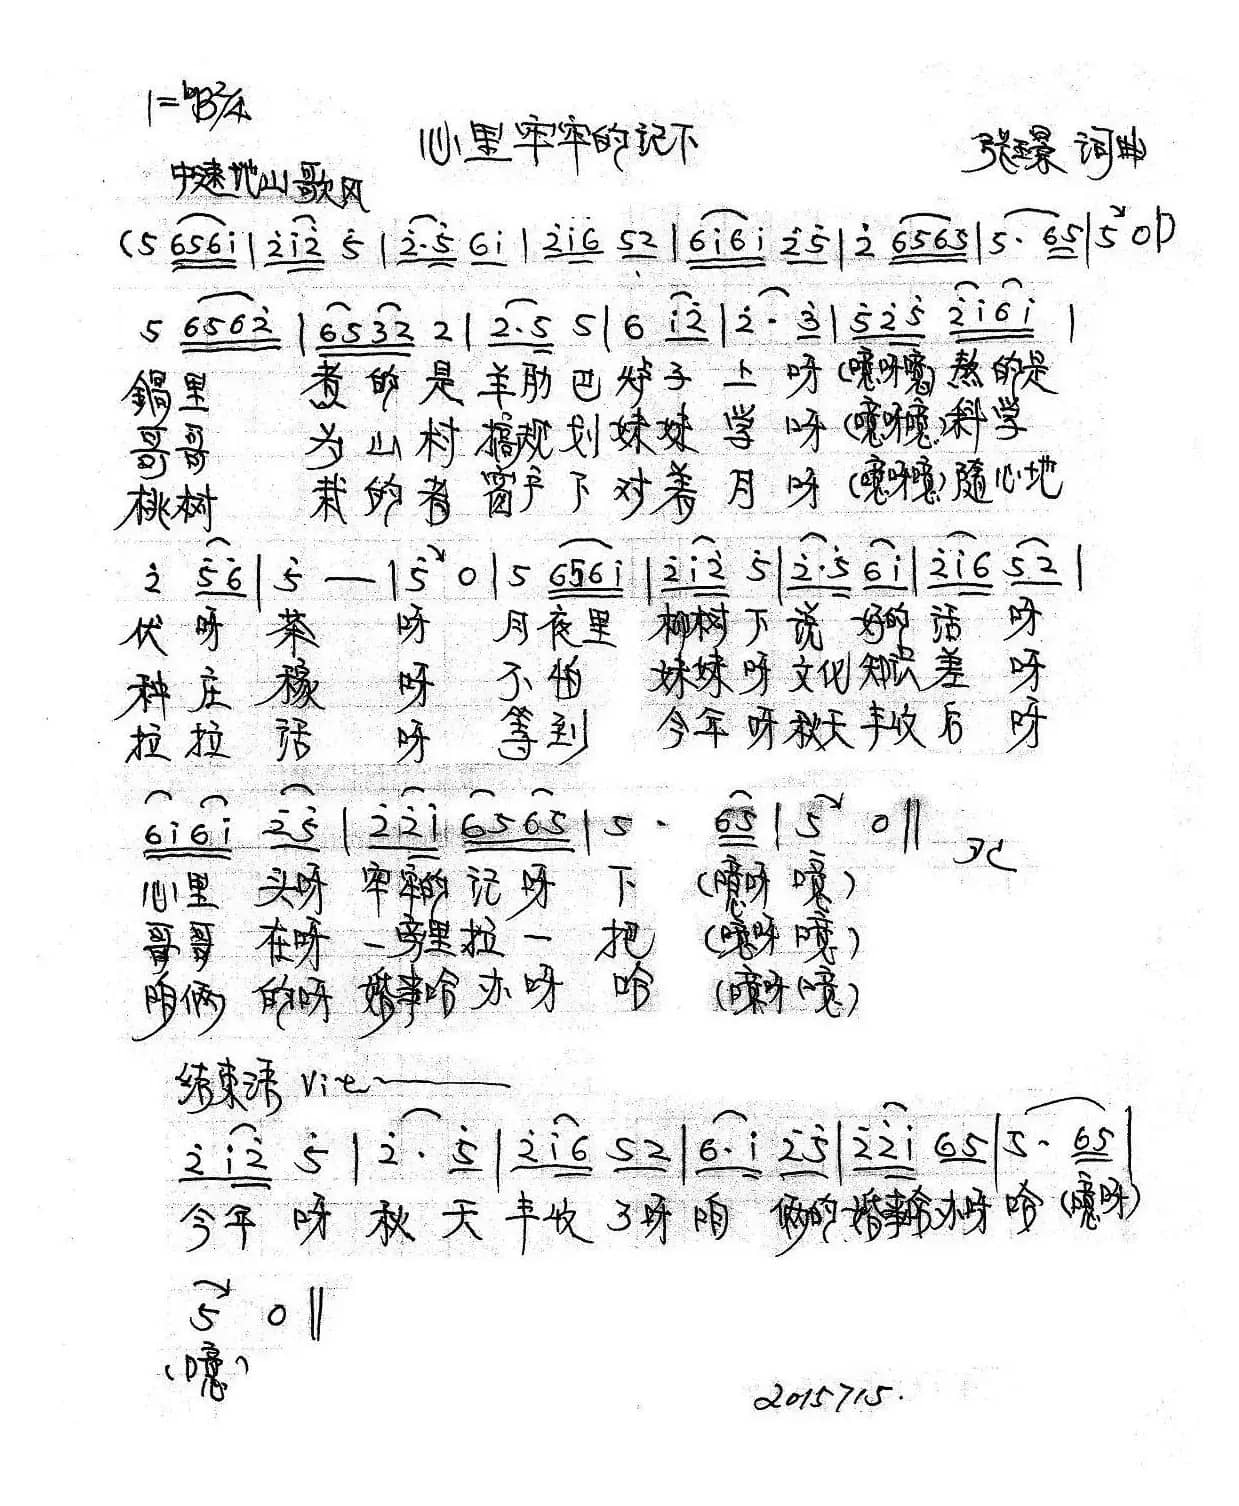 1=♭B 2/4
心里牢牢的记下
张璟 词曲
中速地山歌风
(5 6561|2i2 5|2·5 6i|2i6 52|6i6i 25|2 6565|5· 65|5 0)
5 6562|6532 2|2·5 5|6 i2|2· 3|525 2i6i|
鍋里 煮的是羊肋巴炉子上呀(噫呀噫)熬的是
哥哥 为山村搞规划妹妹学呀(噫呀噫)科学
桃树 栽的者窗户下对着月呀(噫呀噫)随心地
2 56|5 —|5 0|5 656i|2i2 5|2·5 6i|2i6 52|
伏呀茶呀月夜里 柳树下说好的话呀
种庄稼呀不怕 妹妹呀文化知识差呀
拉拉话呀等到 今年呀秋天丰收后呀
6i6i 25|22i 6565|5· 65|5 0‖
心里头呀牢牢的记呀下(噫呀噫)
哥哥在呀一旁里拉一把(噫呀噫)
咱俩的呀婚事哈办呀哈(噫呀噫)
结束语
2i2 5|2· 5|2i6 52|6·i 25|22i 65|5· 65|
今年呀秋天丰收了呀咱俩的婚事哈办呀哈(噫呀)
5 0‖
(噫)
2015715.